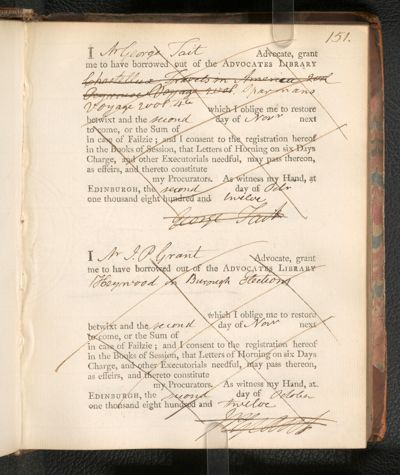 151.
I Mr George Tait Advocate, grant
me to have borrowed out of the ADVOCATES LIBRARY
Chastellux Travels in America 2 vol
Voyage 2 vol Sparmans
Voyage vol 4to which I oblige me to restore
betwixt and the second day of Novr next
to come, or the Sum of
in case of Failzie; and I consent to the registration hereof
in the Books of Session, that Letters of Horning on six Days
Charge, and other Executorials needful, may pass thereon,
as effeirs, and thereto constitute
my Procurators. As witness my Hand, at
EDINBURGH, the second day of Octr
one thousand eight hundred and twelve
George Tait
I Mr J. P. Grant Advocate, grant
me to have borrowed out of the ADVOCATES LIBRARY
Heywood on Burough Elections
which I oblige me to restore
betwixt and the second day of Novr next
to come, or the Sum of
in case of Failzie; and I consent to the registration hereof
in the Books of Session, that Letters of Horning on six Days
Charge, and other Executorials needful, may pass thereon,
as effeirs, and thereto constitute
my Procurators. As witness my Hand, at
EDINBURGH, the second day of October
one thousand eight hundred and twelve